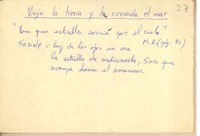 27
Viaja la tierra y la circunda el mar
"Una gran estrella corrió por el cielo"
M. R. (pág.
luz de los ojos en una
la estrella de medianoche, Sirio que
avanza hacia el amanecer.